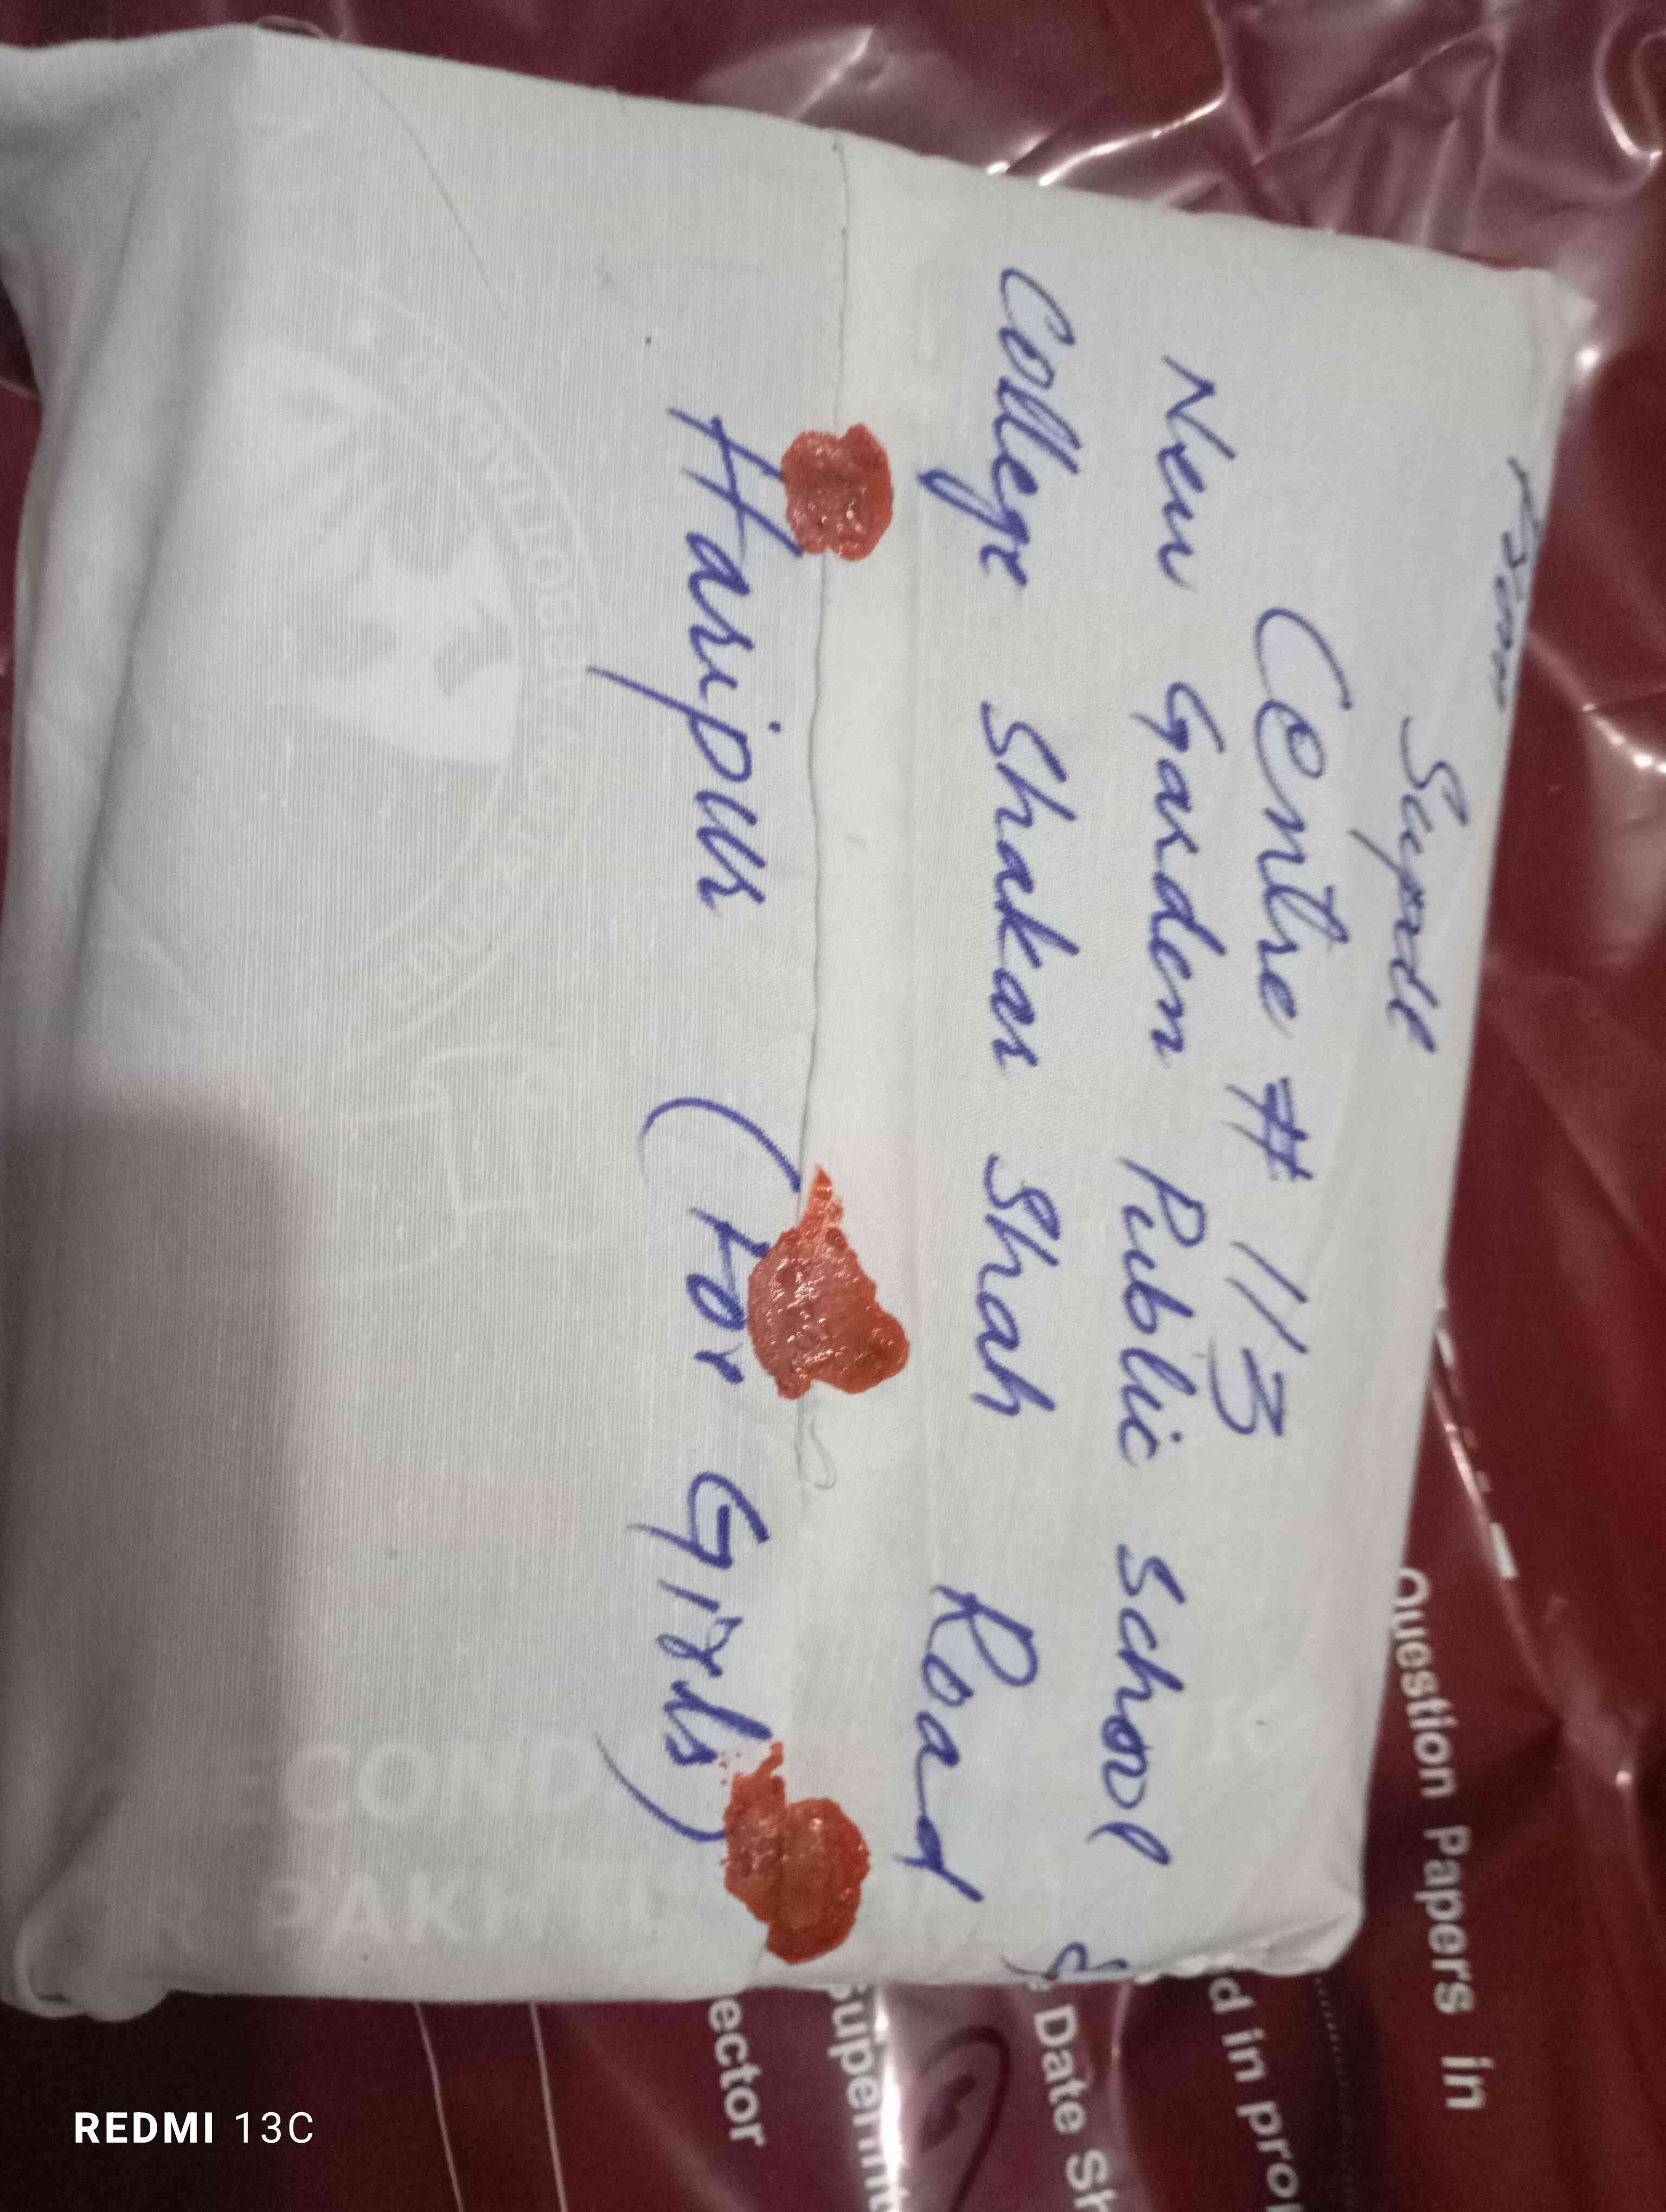 From
Supdt
Centre # 113
New Garden Public School &
College Shaker Shah Road
Haripur (For Girls)
Question Papers in
d in pro
Date Sh
Superint
ector
ABBOTTABAD
SECOND
R PAKHTU
REDMI 13C